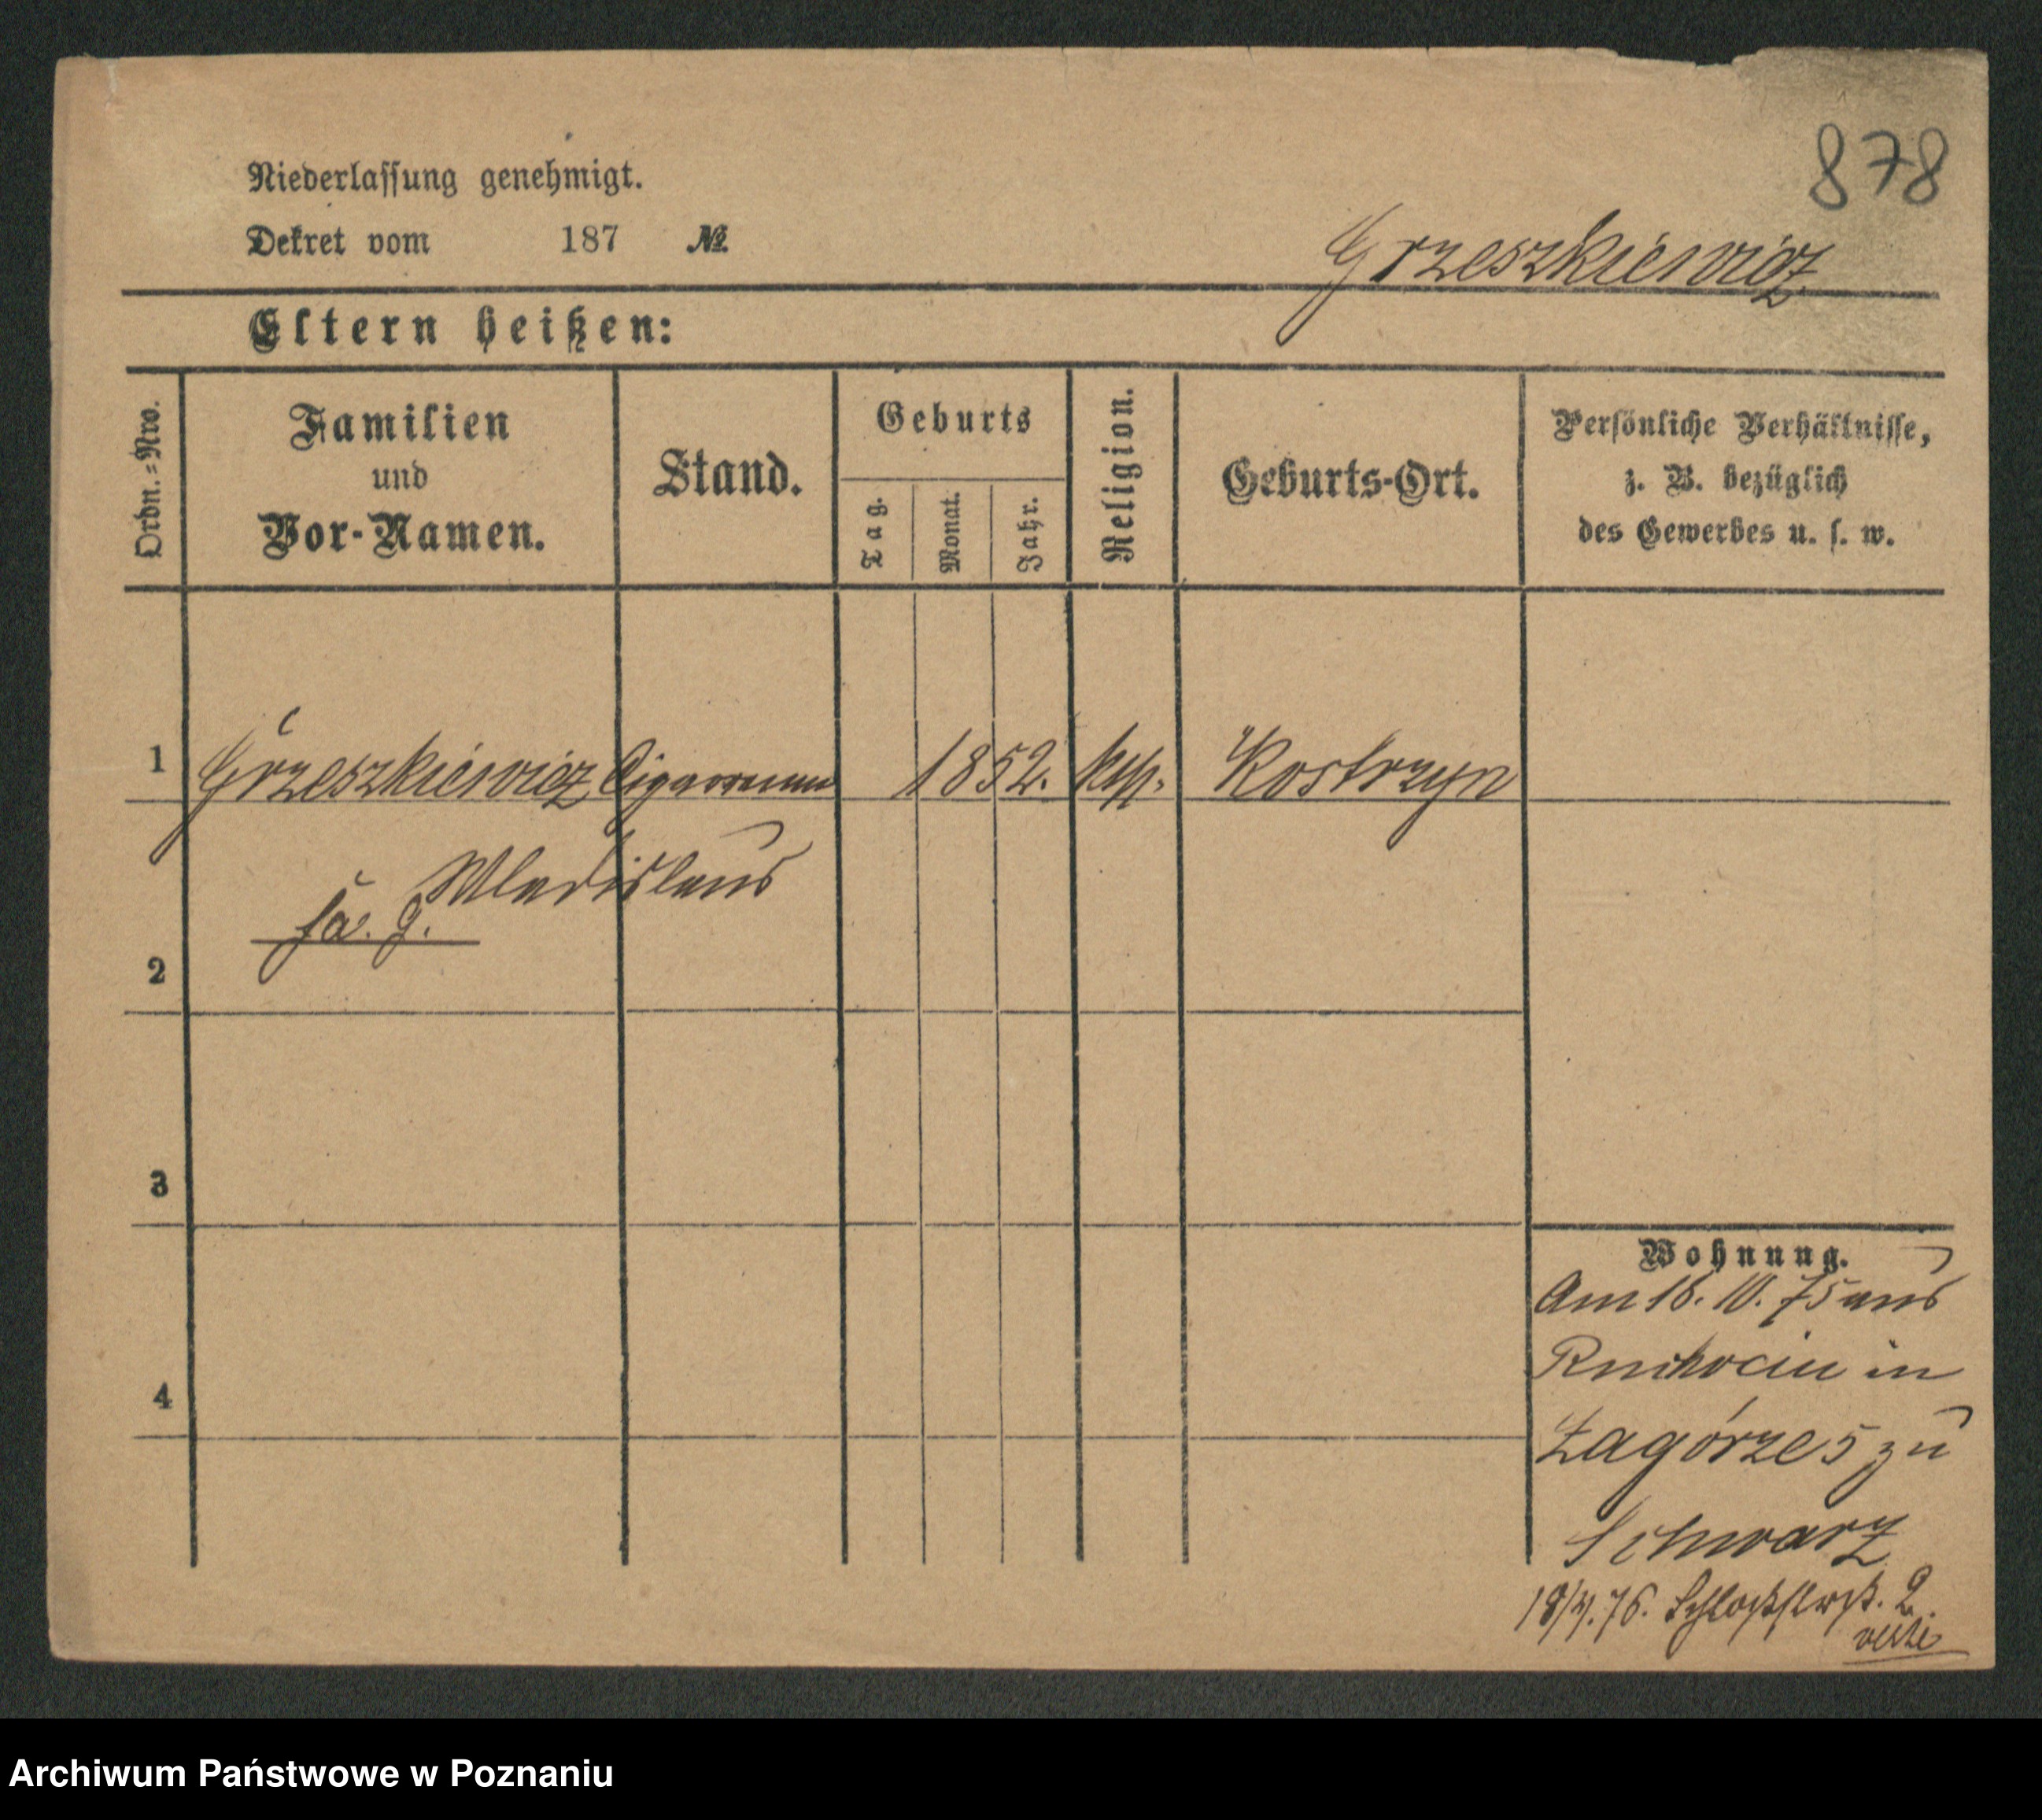 878
Niederlassung genehmigt.
Dekret vom 187 №
Grzeszkiewicz
Eltern heißen:
Ordn.-Nro.
Familien und Vor-Namen.
Stand.
Geburts
Tag.
Monat.
Jahr.
Religion.
Geburts-Ort.
Persönliche Verhältnisse,
z. B. bezüglich
des Gewerbes u. s. w.
1 Grzeszkiewicz 1852. kth. Kostrzyn
Wladislaus
2
3
4
Wohnung.
Am 16. 10. 75 aus
in
Zagórze 5 zu
Schwarz
76. 2.
verte
Archiwum Państwowe w Poznaniu